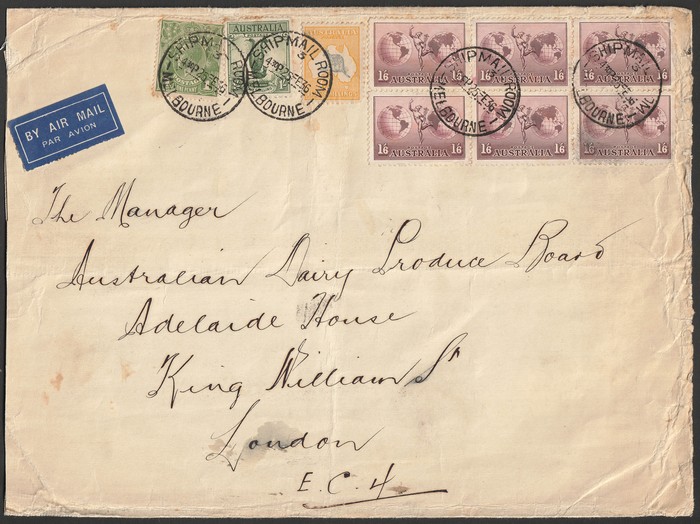 BY AIR MAIL
PAR AVION
SHIP MAIL ROOM
3
MELBOURNE
SHIP MAIL ROOM
3
MELBOURNE
SHIP MAIL ROOM
MELBOURNE
SHIP MAIL ROOM
3
MELBOURNE
AUSTRALIA
AUSTRALIA
1/6 AUSTRALIA 1/6
1/6 AUSTRALIA 1/6
1/6 AUSTRALIA 1/6
1/6 AUSTRALIA 1/6
1/6 AUSTRALIA 1/6
1/6 AUSTRALIA 1/6
The Manager
Australian Dairy Produce Board
Adelaide House
King William St
London
E.C.4